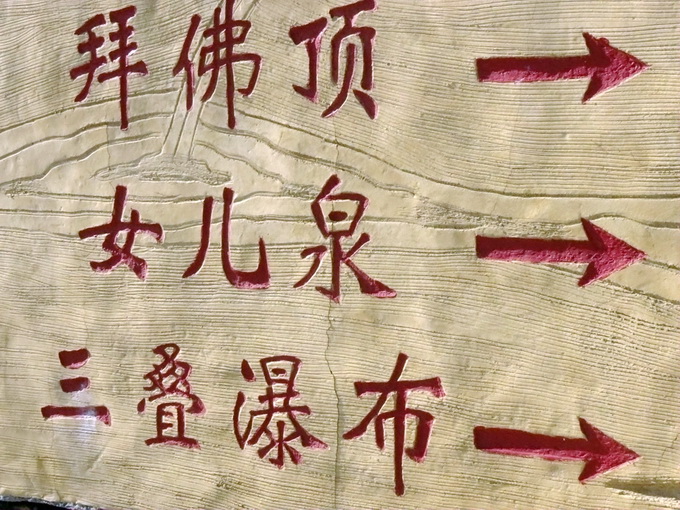 拜佛顶
女儿泉
三叠瀑布